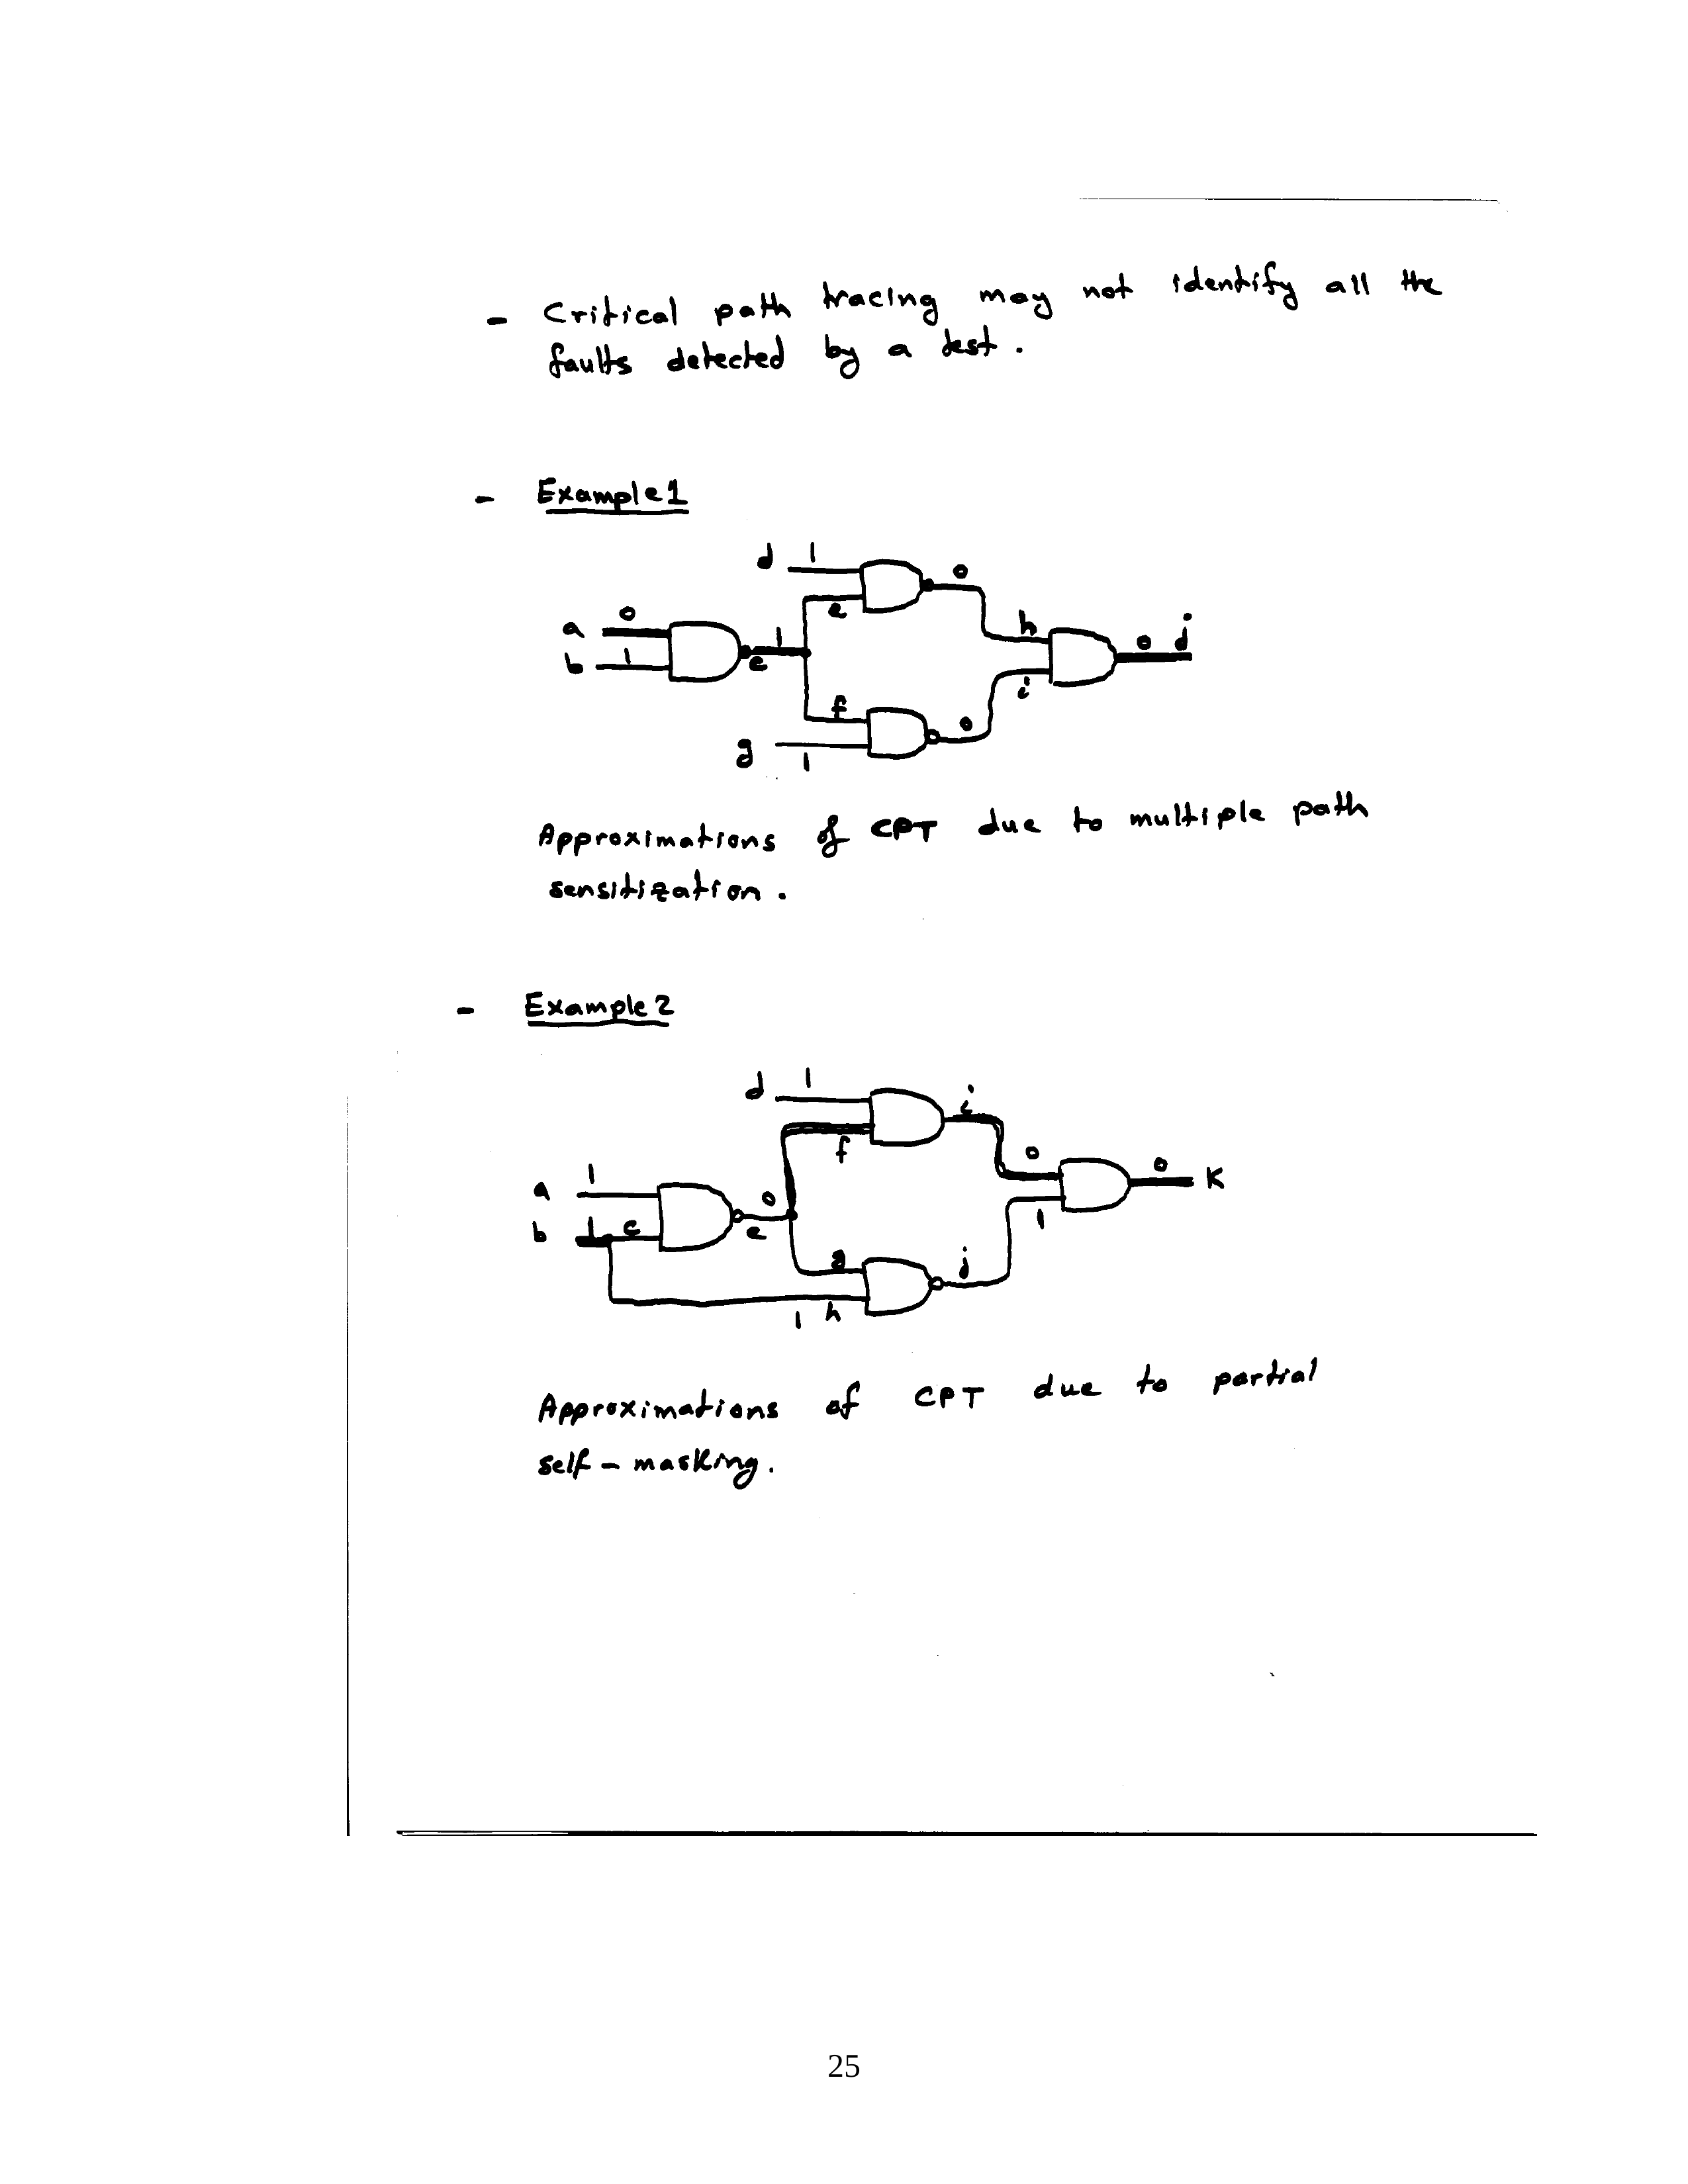 - Critical path tracing may not identify all the
faults detected by a test.
- Example 1
d 1
0
e
a 0
h
0 j
1
b 1
c
i
f
0
g
1
Approximations of CPT due to multiple path
sensitization.
- Example 2
d 1
i
f
0
0 K
a 1
0
b 1 c
e
1
g
j
1 h
Approximations of CPT due to partial
self-masking.
25